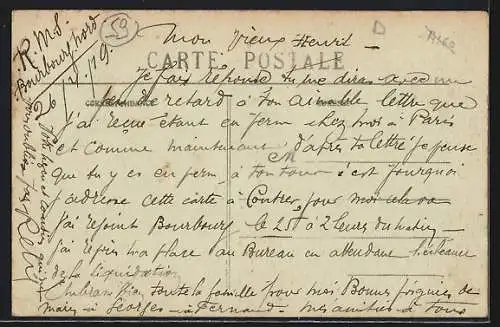 R.M.S.
Bourbourg nord
26/ /19
59
D
Mon Vieux Henri
CARTE POSTALE
Je fais réponse tu me diras avec un
peu de retard à ton Aimable lettre que
CORRESPONDANCE
j'ai reçue étant en perm chez moi à Paris
et comme maintenant d'après ta lettre je pense
que tu y es en perm, à ton tour c'est pourquoi
j'adresse cette carte à Contres, pour moi
J'ai rejoint Bourbourg le 25 à 2 heures du matin
J'ai repris ma place au Bureau en attendant
de la liquidation
toute la famille pour moi. Bonnes poignes de
mains à Georges à Fernand. mes amitiés à tous